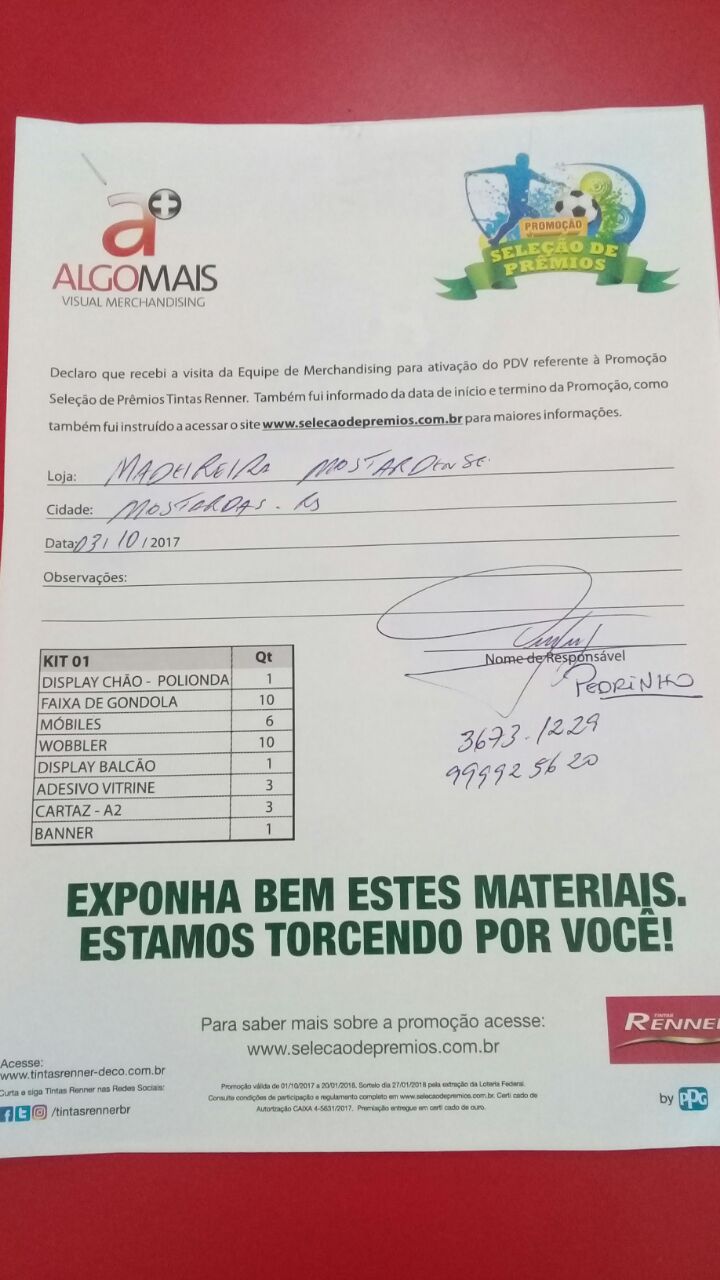 a+
ALGOMAIS
VISUAL MERCHANDISING
PROMOÇÃO
SELEÇÃO DE
PRÊMIOS
Declaro que recebi a visita da Equipe de Merchandising para ativação do PDV referente à Promoção
Seleção de Prêmios Tintas Renner. Também fui informado da data de início e termino da Promoção, como
também fui instruído a acessar o site www.selecaodepremios.com.br para maiores informações.
Loja: MADEIREIRA MOSTARDENSE
Cidade: MOSTARDAS - RS
Data: 03/10/2017
Observações:
Nome de Responsável
PEDRINHO
3673.1229
999925620
KIT 01 Qt
DISPLAY CHÃO - POLIONDA 1
FAIXA DE GONDOLA 10
MÓBILES 6
WOBBLER 10
DISPLAY BALCÃO 1
ADESIVO VITRINE 3
CARTAZ - A2 3
BANNER 1
EXPONHA BEM ESTES MATERIAIS.
ESTAMOS TORCENDO POR VOCÊ!
Para saber mais sobre a promoção acesse:
www.selecaodepremios.com.br
TINTAS
RENNER
Acesse:
www.tintasrenner-deco.com.br
Curta e siga Tintas Renner nas Redes Sociais:
/tintasrennerbr
Promoção válida de 01/10/2017 a 20/01/2018. Sorteio dia 27/01/2018 pela extração da Loteria Federal.
Consulte condições de participação e regulamento completo em www.selecaodepremios.com.br. Certi cado de
Autorização CAIXA 4-5631/2017. Premiação entregue em certi cado de ouro.
by PPG